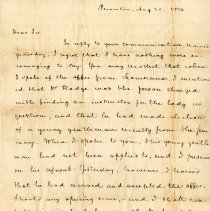 Princeton, Aug 30, 18
Dear Sir,
In reply to your communication, received
yesterday, I regret that I have nothing more en-
couraging to say. You may recollect that when
I spoke of the offer from I mention
ed that Dr Hodge was the person charged
with finding an instructor for the lady in
question, and that he had made selection
of a young gentleman recently from the Sem
inary. When I spoke to you, this young gentle
man had not been applied to, and I
on his refusal. Yesterday, however, I learn
that he had received and accepted the offer.
Should any opening occur, and I shall